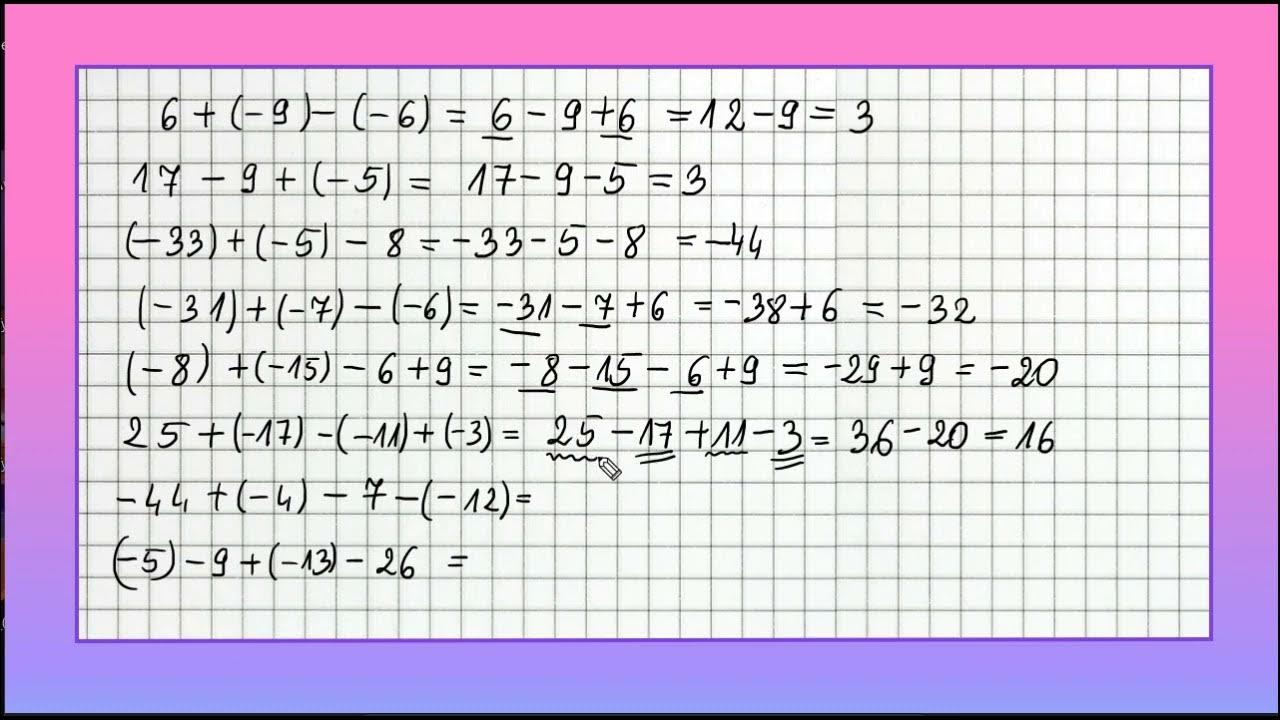 6 + (-9) - (-6) = 6 - 9 + 6 = 12 - 9 = 3
17 - 9 + (-5) = 17 - 9 - 5 = 3
(-33) + (-5) - 8 = -33 - 5 - 8 = -44
(-31) + (-7) - (-6) = -31 - 7 + 6 = -38 + 6 = -32
(-8) + (-15) - 6 + 9 = -8 - 15 - 6 + 9 = -29 + 9 = -20
25 + (-17) - (-11) + (-3) = 25 - 17 + 11 - 3 = 36 - 20 = 16
-44 + (-4) - 7 - (-12) =
(-5) - 9 + (-13) - 26 =